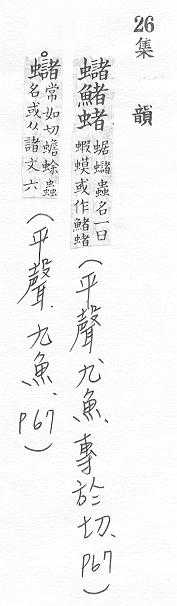 26 集韻
蠩鯺蝫 蜛蠩蟲名一曰
蝦蟆或作鯺蝫
(平聲、九魚、專於切、P67)
蠩 常如切蟾蜍蟲
名或从諸文六
(平聲、九魚、P67)